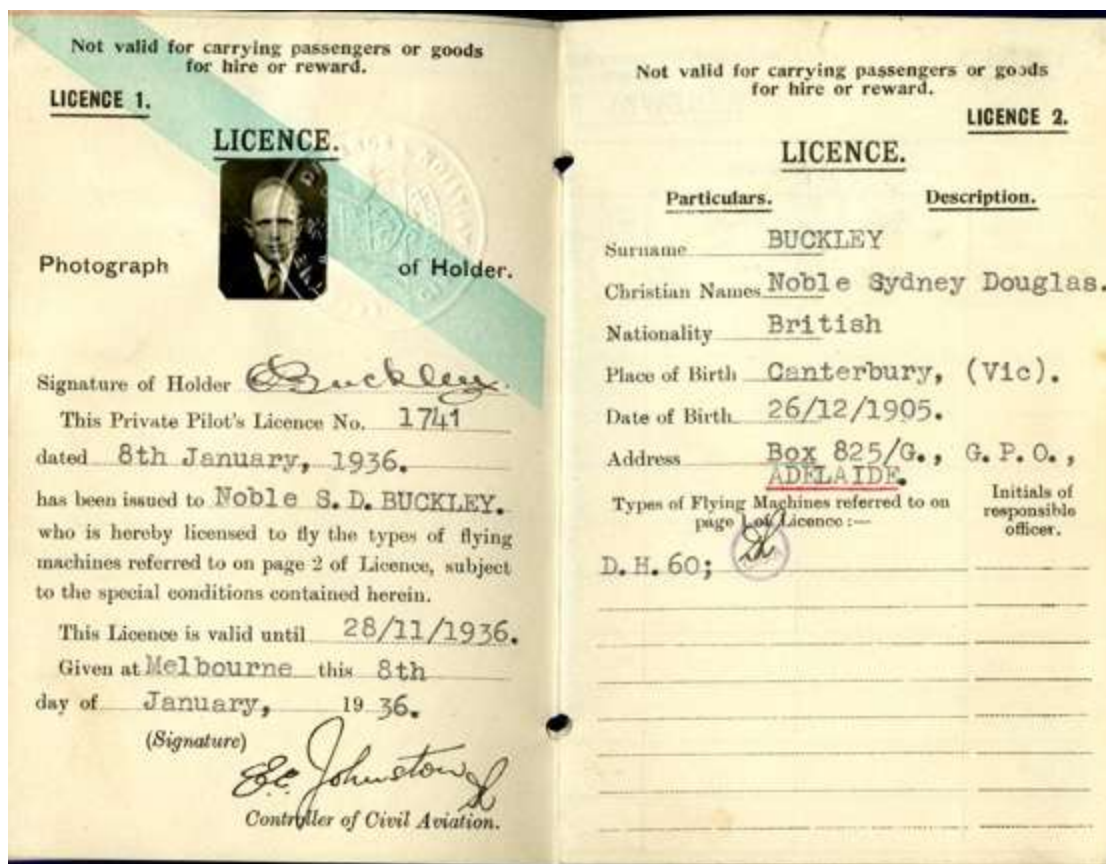 Not valid for carrying passengers or goods
for hire or reward.
LICENCE 1.
LICENCE.
Photograph of Holder.
Signature of Holder Buckley.
This Private Pilot's Licence No. 1741
dated 8th January, 1936.
has been issued to Noble S. D. BUCKLEY.
who is hereby licensed to fly the types of flying
machines referred to on page 2 of Licence, subject
to the special conditions contained herein.
This Licence is valid until 28/11/1936.
Given at Melbourne this 8th
day of January, 19 36.
(Signature)
E.C. Johnston
Controller of Civil Aviation.
Not valid for carrying passengers or goods
for hire or reward.
LICENCE 2.
LICENCE.
Particulars. Description.
Surname BUCKLEY
Christian Names Noble Sydney Douglas.
Nationality British
Place of Birth Canterbury, (Vic).
Date of Birth 26/12/1905.
Address Box 825/G., G.P.O.,
ADELAIDE.
Types of Flying Machines referred to on
page 1 of Licence :—
Initials of
responsible
officer.
D.H.60;